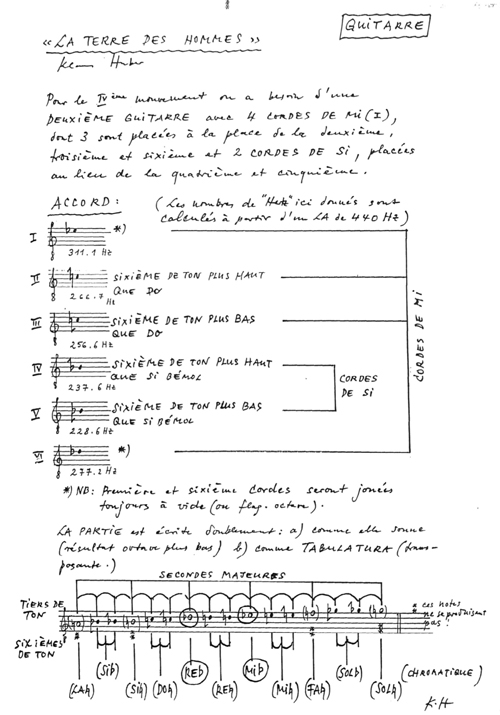 GUITARRE
«LA TERRE DES HOMMES»
Klaus Huber
Pour le IVème mouvement on a besoin d'une
DEUXIÈME GUITARRE avec 4 CORDES DE MI(I),
dont 3 sont placées à la place de la deuxième,
troisième et sixième et 2 CORDES DE SI, placées
au lieu de la quatrième et cinquième.
ACCORD: (Les nombres de "Hertz" ici donnés sont
calculés à partir d'un LA de 440 HZ)
I *)
311.1 Hz
II SIXIÈME DE TON PLUS HAUT
QUE DO
266.7 Hz
III SIXIÈME DE TON PLUS BAS
QUE DO
256.6 Hz
IV SIXIÈME DE TON PLUS HAUT
QUE SI BÉMOL
237.6 Hz
V SIXIÈME DE TON PLUS BAS
QUE SI BÉMOL
228.6 Hz
VI *)
277.2 Hz
CORDES
DE SI
CORDES DE MI
*) NB: Première et sixième cordes seront jouées
toujours à vide (ou flag. octave).
LA PARTIE est écrite doublement: a) comme elle sonne
(résultat octave plus bas) b) comme TABULATURA (trans-
posante.)
SECONDES MAJEURES
TIERS DE
TON
* ces notes
ne se produisent
pas!
SIXIÈMES
DE TON
(LA♮) (SI♭) (SI♮) (DO♮) (RÉ♭) (RÉ♮) (MI♭) (MI♮) (FA♮) (SOL♭) (SOL♮) (CHROMATIQUE)
K.H